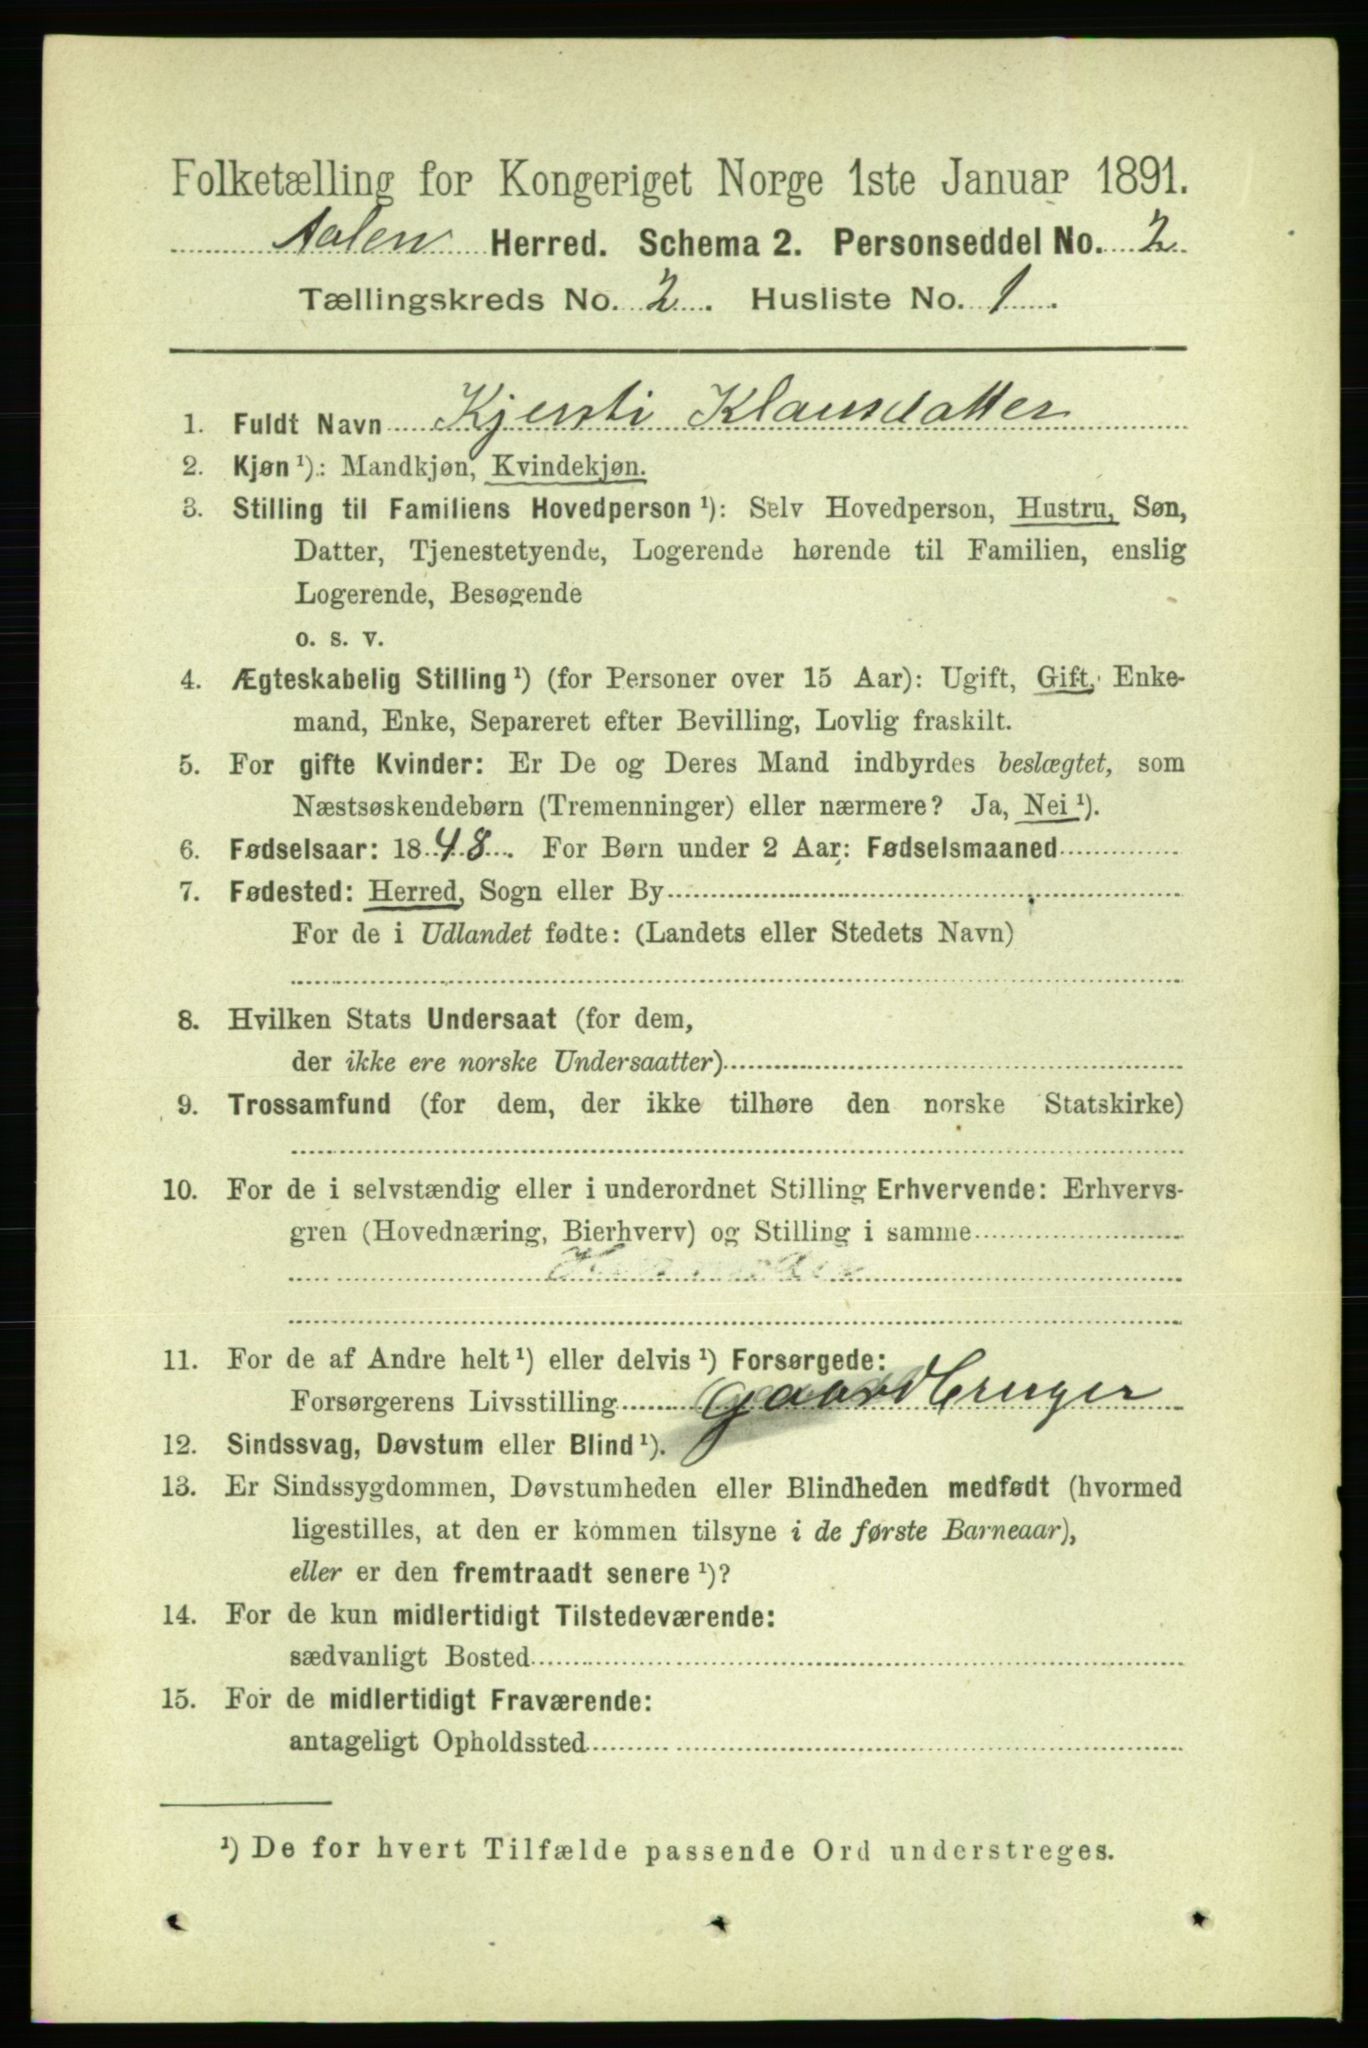 Folketælling for Kongeriget Norge 1ste Januar 1891.
Aalen Herred. Schema 2. Personseddel No. 2
Tællingskreds No. 2. Husliste No. 1.
1. Fuldt Navn Kjersti Klausdatter
2. Kjøn ¹): Mandkjøn, Kvindekjøn.
3. Stilling til Familiens Hovedperson ¹): Selv Hovedperson, Hustru, Søn,
Datter, Tjenestetyende, Logerende hørende til Familien, enslig
Logerende, Besøgende
o. s. v.
4. Ægteskabelig Stilling ¹) (for Personer over 15 Aar): Ugift, Gift, Enke-
mand, Enke, Separeret efter Bevilling, Lovlig fraskilt.
5. For gifte Kvinder: Er De og Deres Mand indbyrdes beslægtet, som
Næstsøskendebørn (Tremenninger) eller nærmere? Ja, Nei ¹).
6. Fødselsaar: 1848. For Børn under 2 Aar: Fødselsmaaned
7. Fødested: Herred, Sogn eller By
For de i Udlandet fødte: (Landets eller Stedets Navn)
8. Hvilken Stats Undersaat (for dem,
der ikke ere norske Undersaatter)
9. Trossamfund (for dem, der ikke tilhøre den norske Statskirke)
10. For de i selvstændig eller i underordnet Stilling Erhvervende: Erhvervs-
gren (Hovednæring, Bierhverv) og Stilling i samme
11. For de af Andre helt ¹) eller delvis ¹) Forsørgede:
Forsørgerens Livsstilling Gaardbruger
12. Sindssvag, Døvstum eller Blind ¹).
13. Er Sindssygdommen, Døvstumheden eller Blindheden medfødt (hvormed
ligestilles, at den er kommen tilsyne i de første Barneaar),
eller er den fremtraadt senere ¹)?
14. For de kun midlertidigt Tilstedeværende:
sædvanligt Bosted
15. For de midlertidigt Fraværende:
antageligt Opholdssted
¹) De for hvert Tilfælde passende Ord understreges.